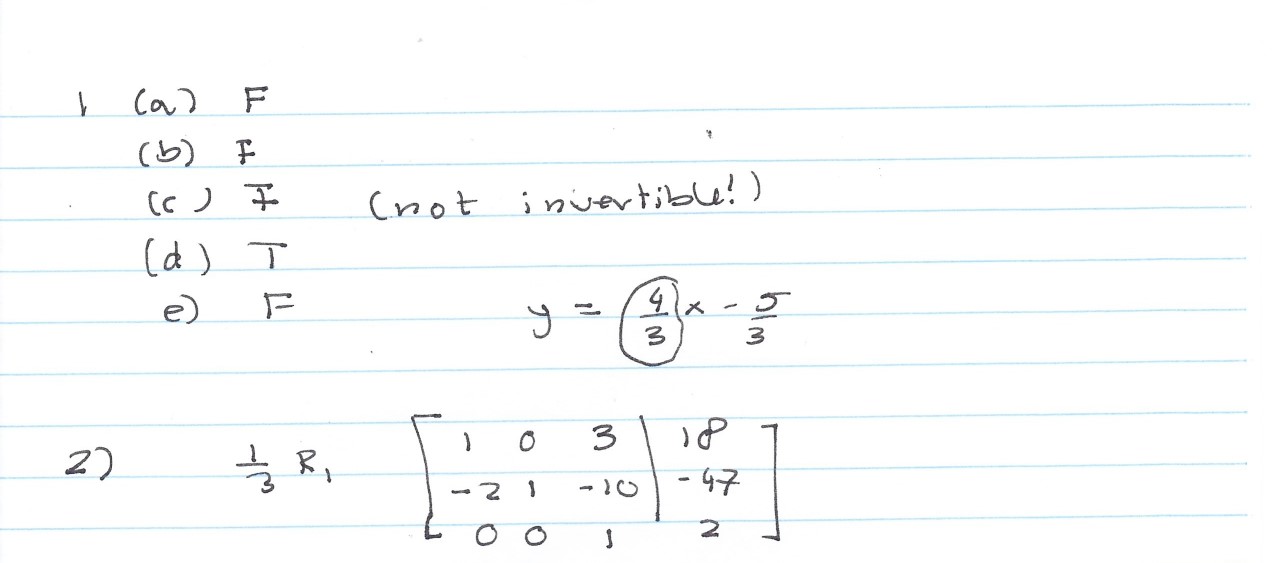 1 (a) F
(b) F
(c) F (not invertible!)
(d) T
e) F y = 4/3 x - 5/3
2) 1/3 R₁ [ 1 0 3 | 18
-2 1 -10 | -47
0 0 1 | 2 ]